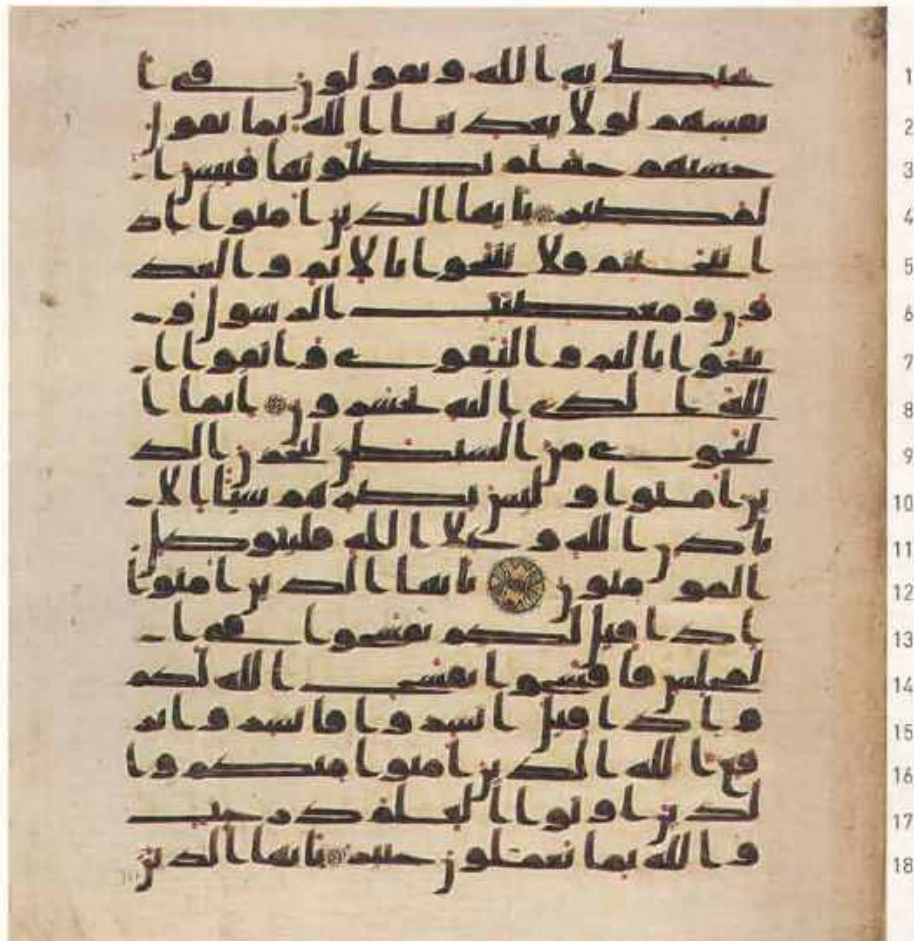 يحيك به الله ويقولون في ا 1
نفسهم لولا يعذبنا الله بما نقول 2
حسبهم جهنم يصلونها فبئس ا 3
لمصير يايها الذين امنوا اذ 4
ا تنجيتم فلا تتنجوا بالاثم والعد 5
ون ومعصيت الرسول و 6
تنجوا بالبر والتقوى واتقوا ا 7
لله الذي اليه تحشرون انما ا 8
لنجوى من الشيطن ليحزن الذ 9
ين امنوا وليس بضرهم شيا الا 10
باذن الله وعلى الله فليتوكل 11
المومنون يايها الذين امنوا 12
اذا قيل لكم تفسحوا في ا 13
لمجلس فافسحوا يفسح الله لكم 14
واذا قيل انشزوا فانشزوا ير 15
فع الله الذين امنوا منكم وا 16
لذين اوتوا العلم درجت 17
والله بما تعملون خبير يايها الذين 18